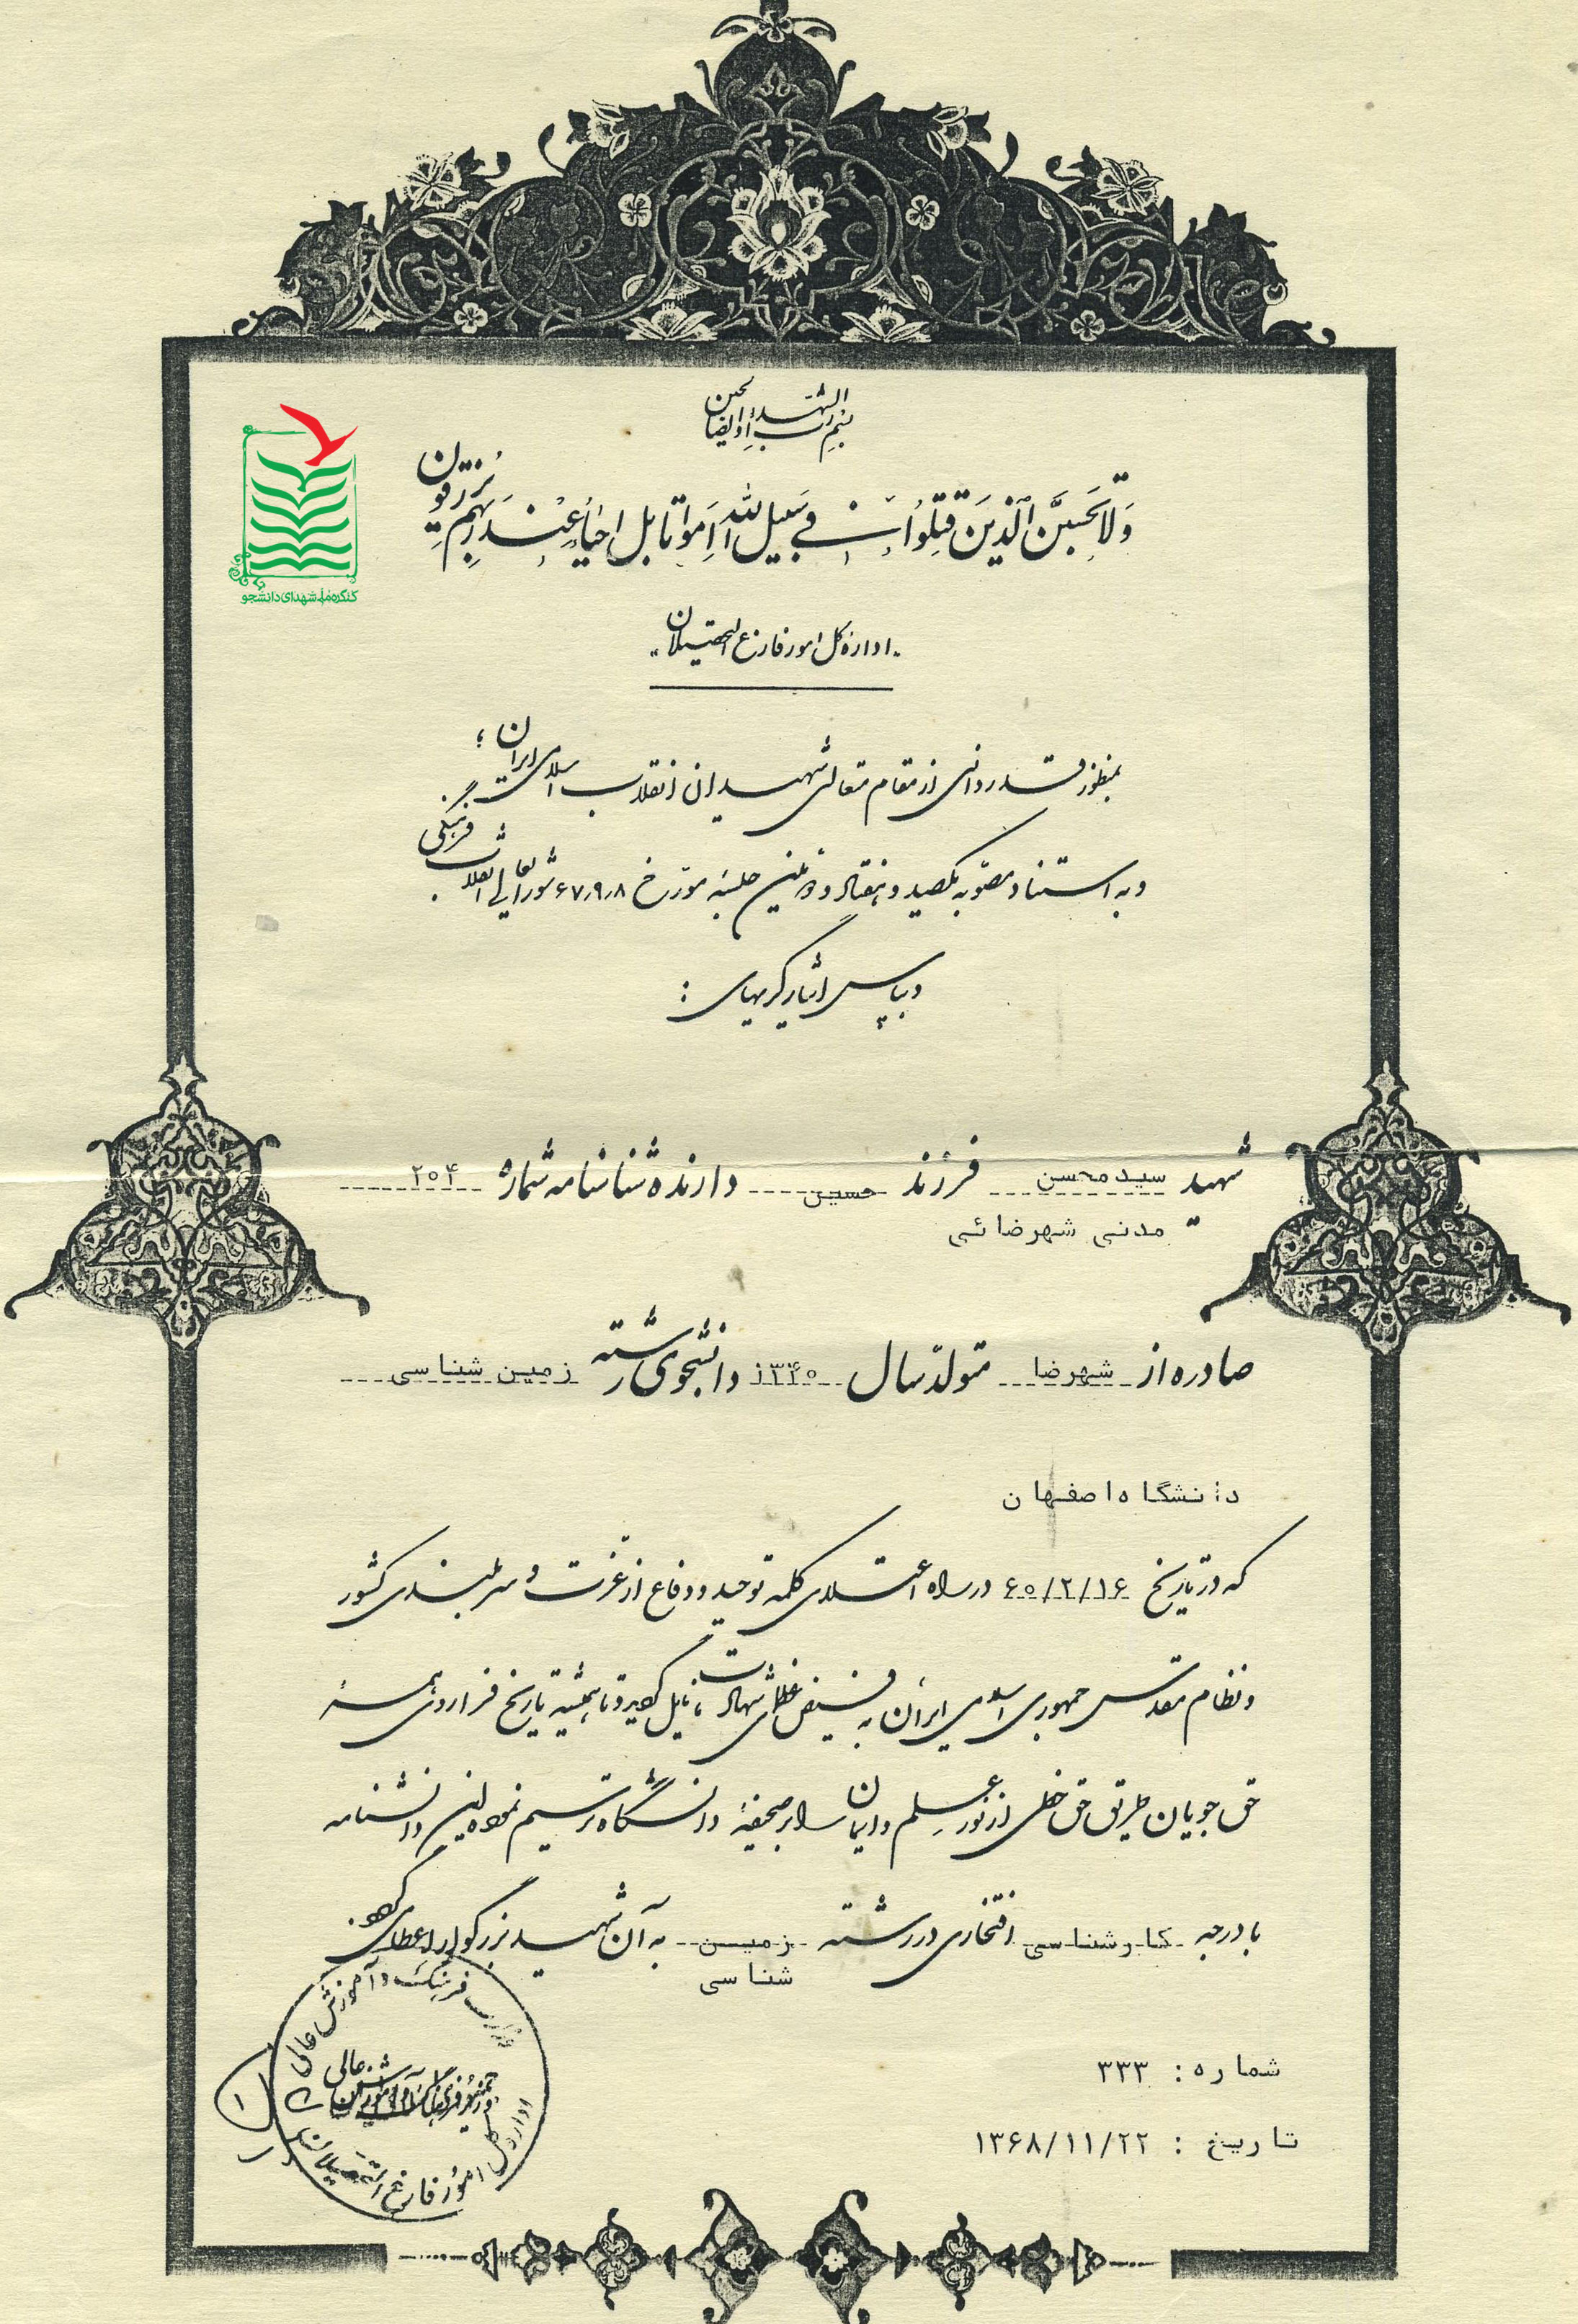 بسم رب الشهداء والصالحین
وَلا تَحسَبَنَّ الَّذینَ قُتِلُوا فی سَبیلِ اللهِ اَمواتا بَل اَحیاءٌ عِندَ رَبِّهِم یُرزَقون
کنگره ملی شهدای دانشجو
اداره کل امور فارغ التحصیلان
بمنظور قدردانی از مقام متعالی شهیدان انقلاب اسلامی ایران ؛
و به استناد مصوبه یکصد و هفتاد و جلسه مورخ ۶۷٫۹٫۸ شورایعالی انقلاب فرهنگی
و بپاس ایثارگریهای :
شهید سید محسن فرزند حسین دارنده شناسنامه شماره ۲۰۴
مدنی شهرضائی
صادره از شهرضا متولد سال ۱۳۴۰ دانشجوی رشته زمین شناسی
دانشگاه اصفهان
که در تاریخ ۶۰/۲/۱۶ در راه اعتلای کلمه توحید و دفاع از عزت و سربلندی کشور
و نظام مقدس جمهوری اسلامی ایران به فیض عظمای شهادت نایل گردید و تا همیشه تاریخ فرا روی همه
حق جویان طریق حق خطی از نور علم و ایمان را بر صحیفه دانشگاه ترسیم نموده این دانشنامه
با درجه کارشناسی افتخاری در رشته زمین به آن شهید بزرگوار اعطا می گردد.
شناسی
شماره : ۳۳۳
تاریخ : ۱۳۶۸/۱۱/۲۲
وزارت فرهنگ و آموزش عالی
اداره کل امور فارغ التحصیلان